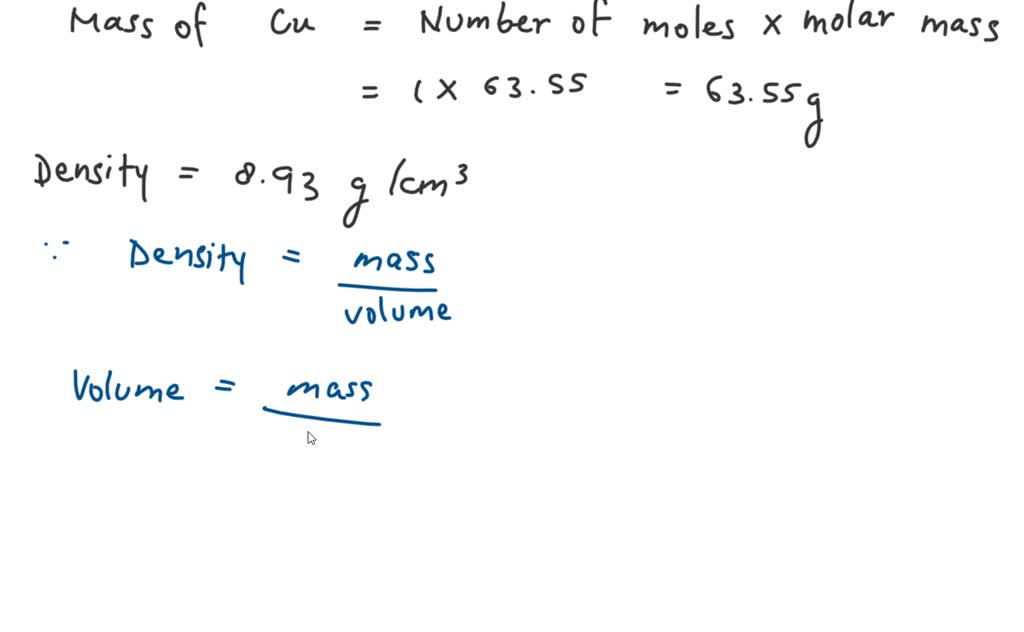 Mass of Cu = Number of moles × molar mass
= 1 × 63.55 = 63.55 g
Density = 8.93 g/cm³
∵ Density = mass
volume
Volume = mass